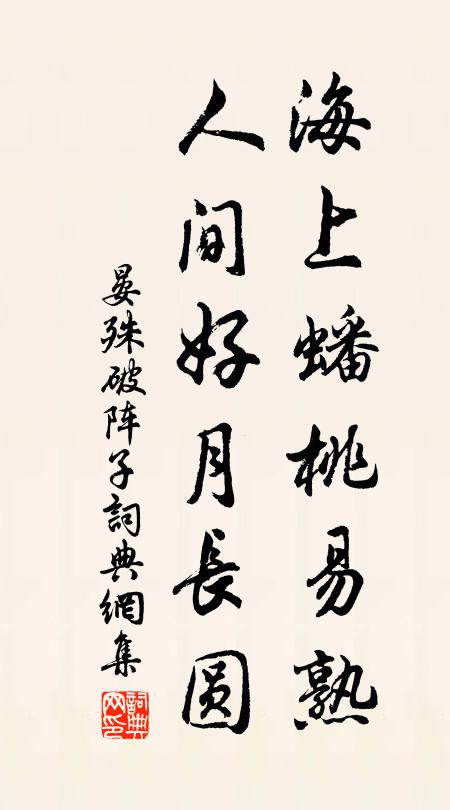 海上蟠桃易熟
人间好月長圆
晏殊破阵子詞典網集
詞典网印